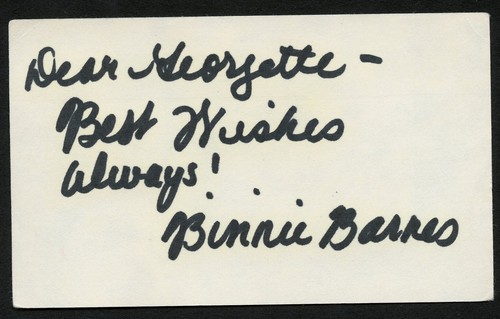 Dear Georgette -
Best Wishes
always!
Binnie Barnes